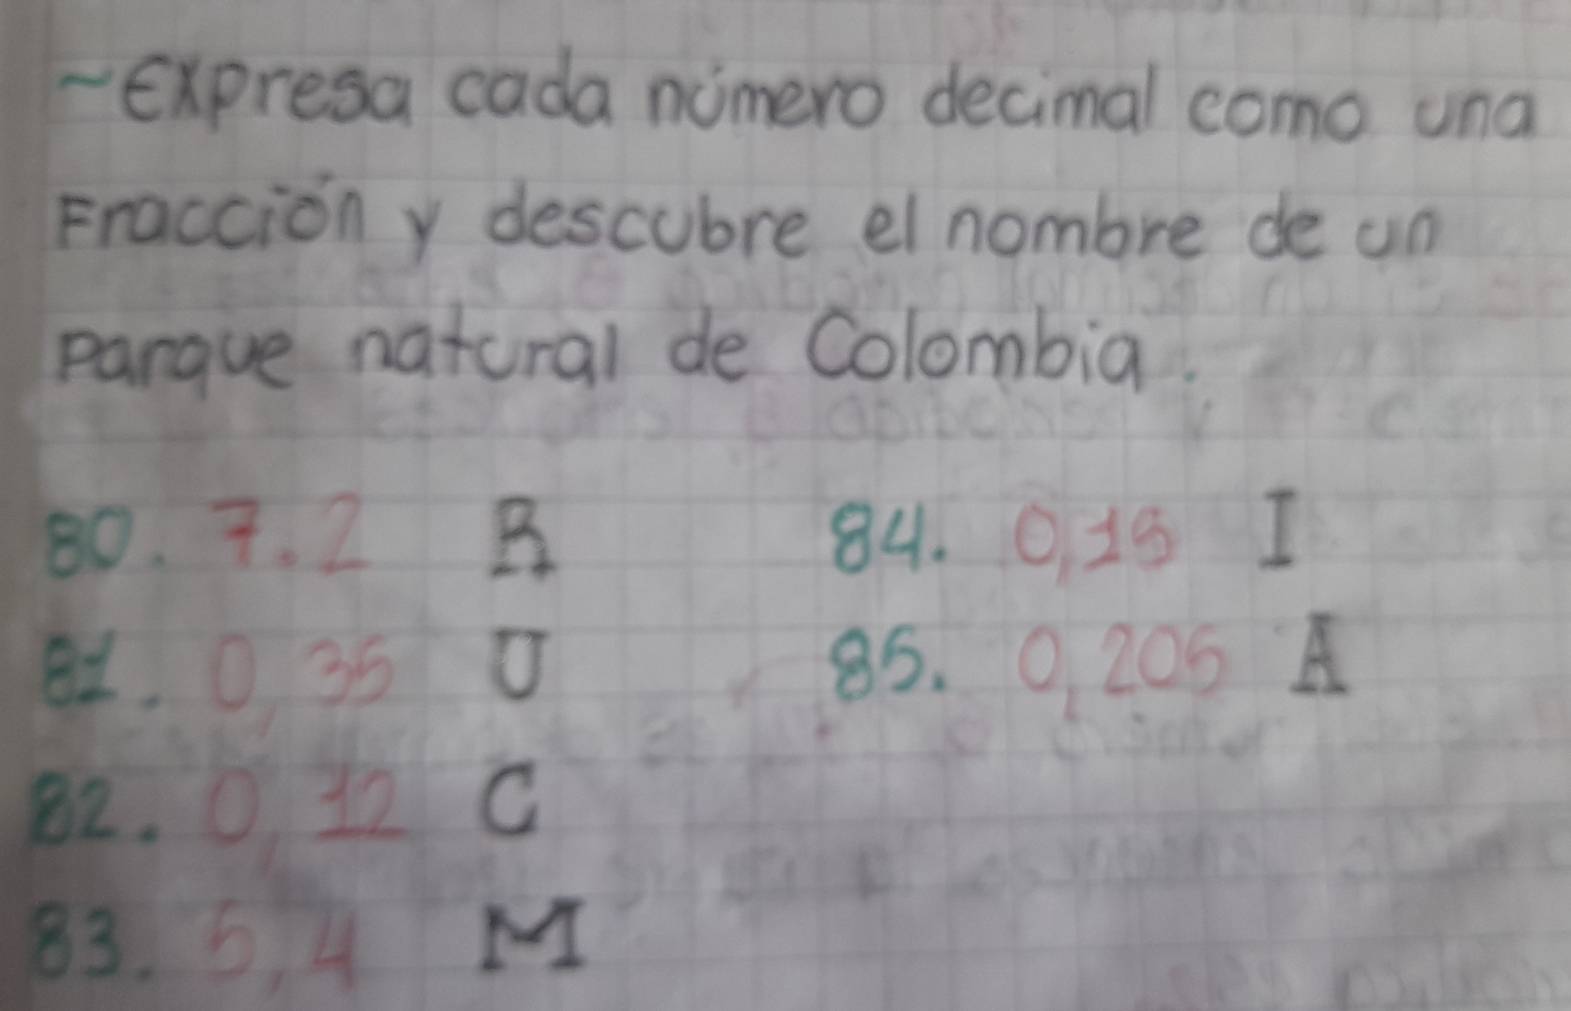 ~Expresa cada número decimal como una
Fracción y descubre el nombre de un
parque natural de Colombia.
80. 7.2 R 84. 0,15 I
81. 0,35 U 85. 0,205 A
82. 0,12 C
83. 5,4 M